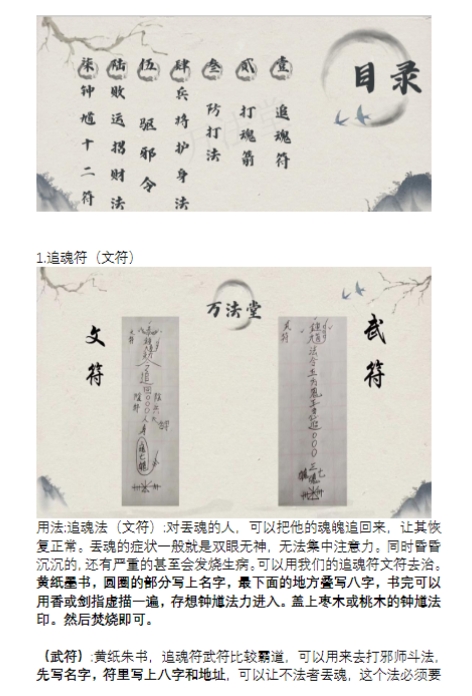 目录
壹 追魂符
贰 打魂箭
叁 防打法
肆 兵将护身法
伍 驱邪令
陆 败运招财法
柒 钟馗十二符
1.追魂符（文符）
万法堂
文符
武符
文符
武符
用法:追魂法（文符）:对丢魂的人，可以把他的魂魄追回来，让其恢
复正常。丢魂的症状一般就是双眼无神，无法集中注意力。同时昏昏
沉沉的,还有严重的甚至会发烧生病。可以用我们的追魂符文符去治。
黄纸墨书，圆圈的部分写上名字，最下面的地方叠写八字，书完可以
用香或剑指虚描一遍，存想钟馗法力进入。盖上枣木或桃木的钟馗法
印。然后焚烧即可。
（武符）:黄纸朱书，追魂符武符比较霸道，可以用来去打邪师斗法，
先写名字，符里写上八字和地址，可以让不法者丢魂，这个法必须要